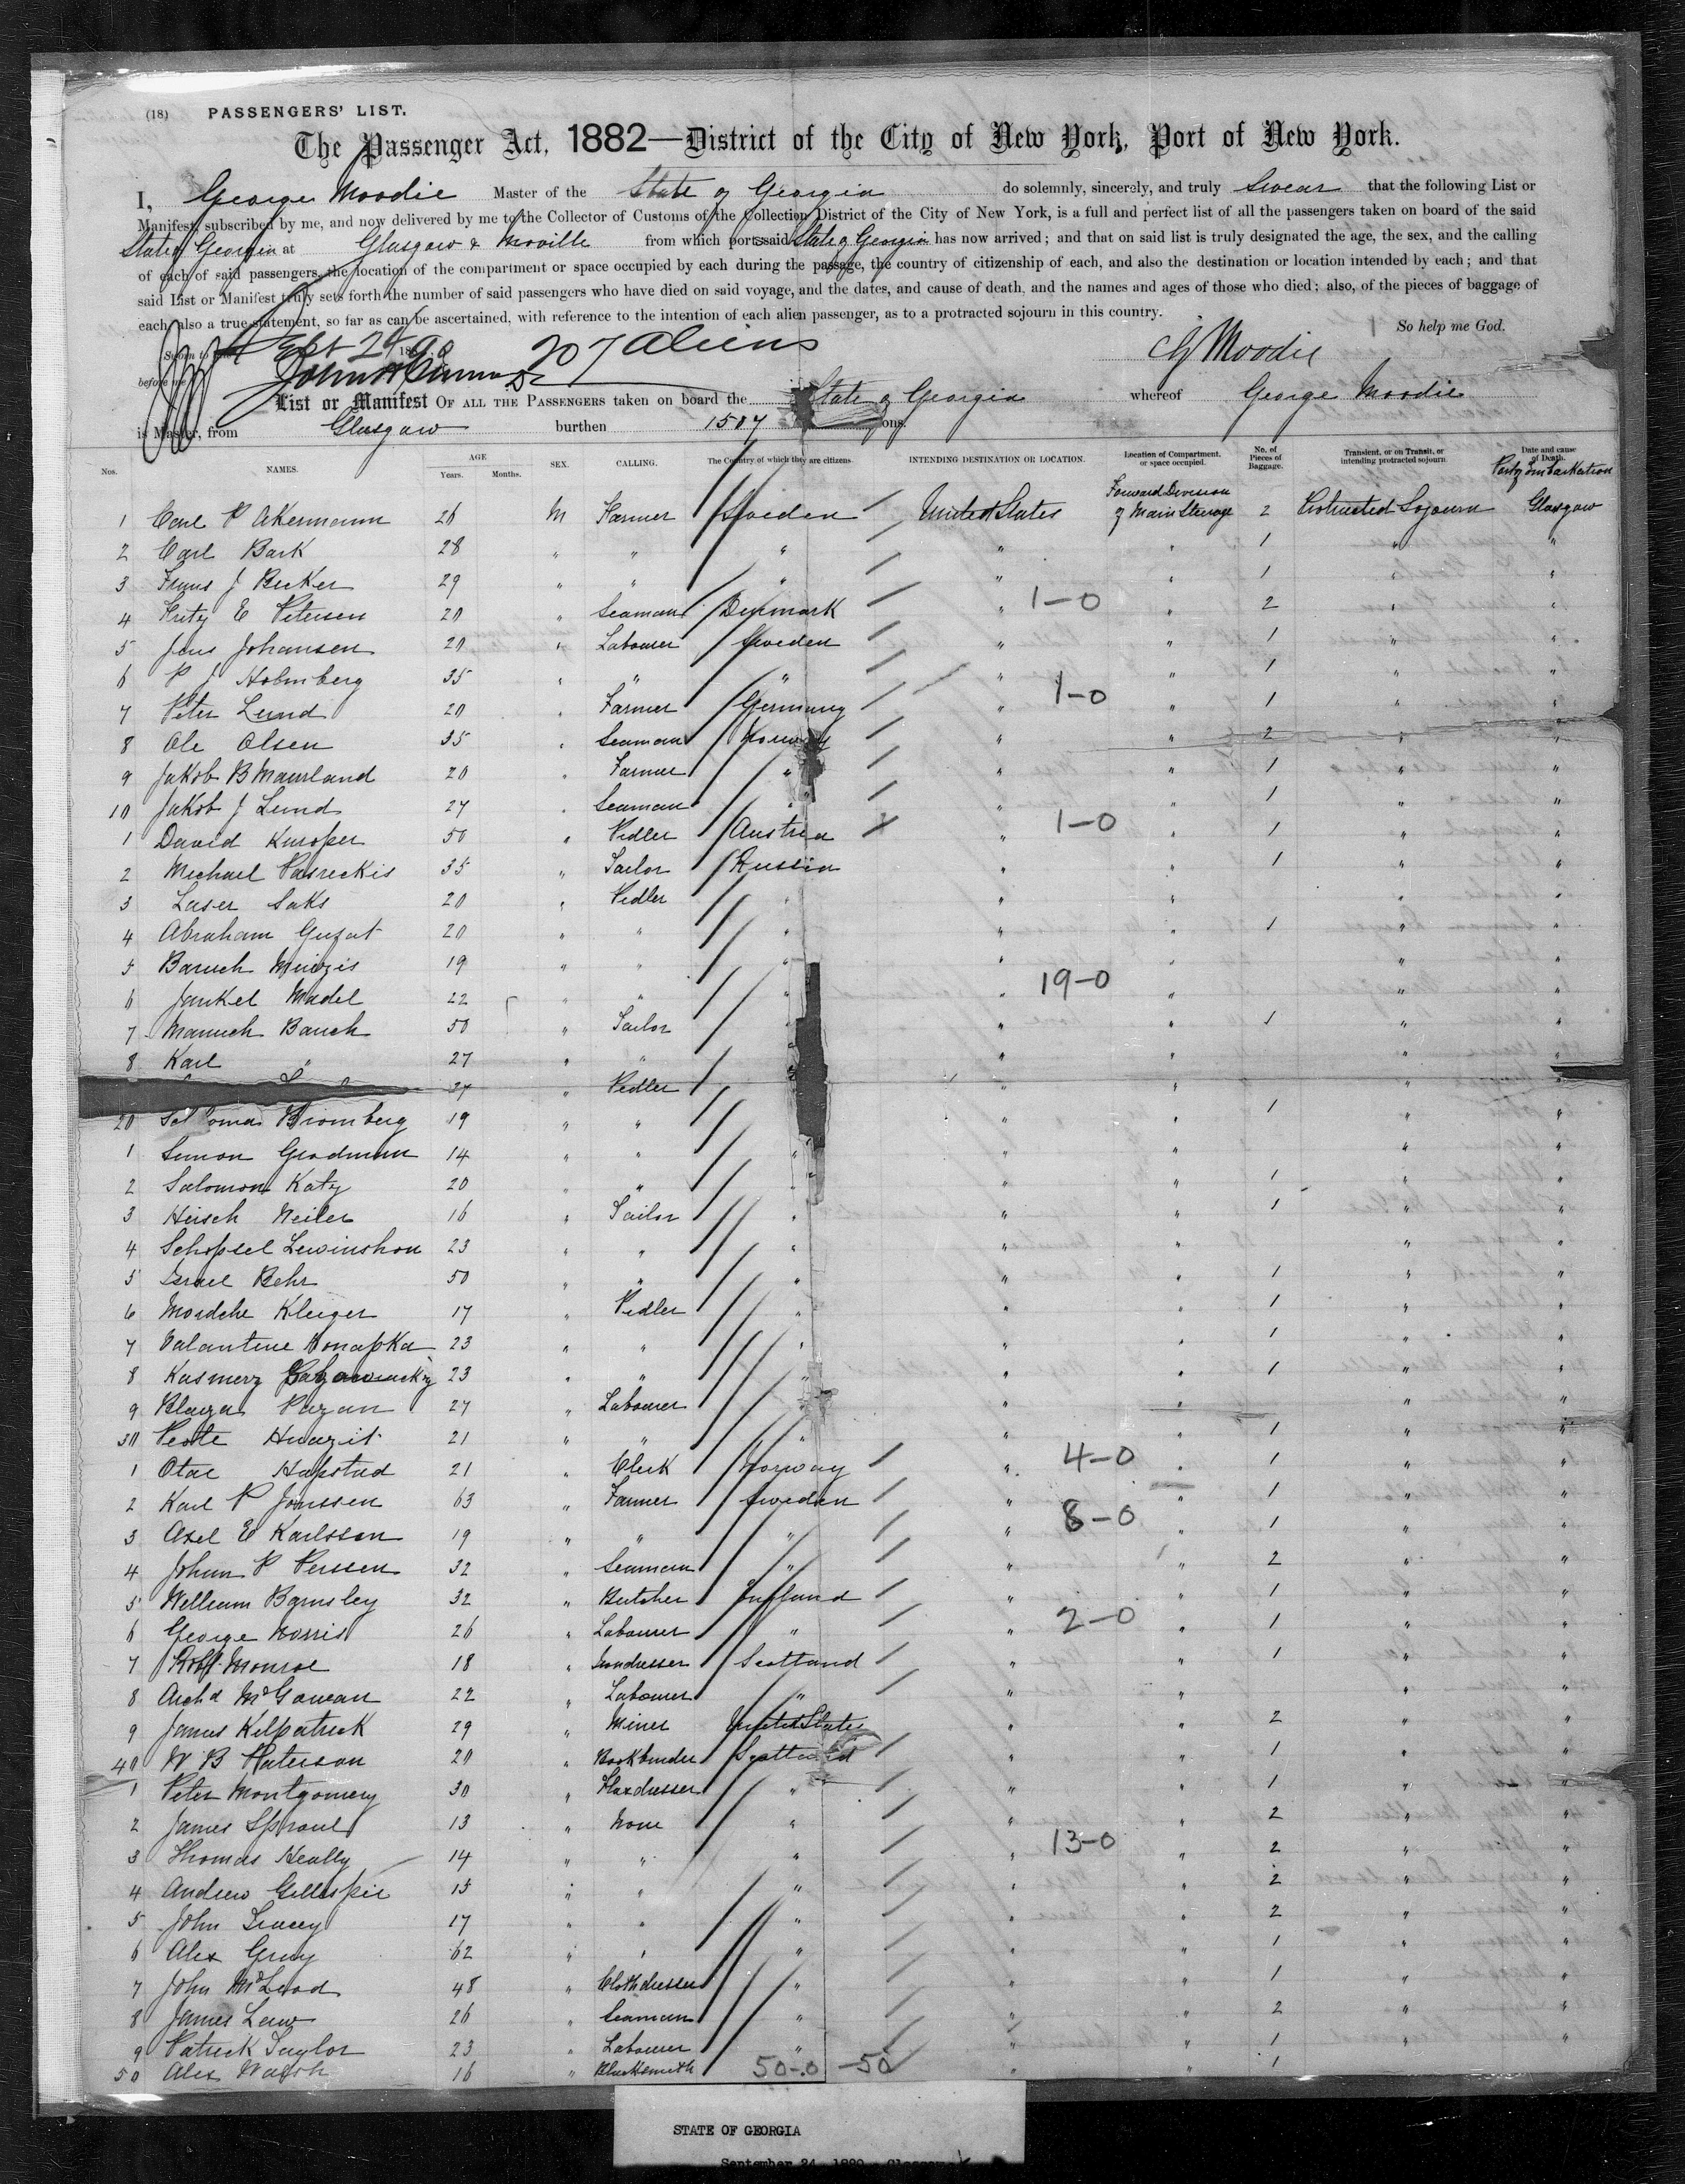 (18) PASSENGERS' LIST.
The Passenger Act, 1882—District of the City of New York, Port of New York.
I, George Moodie Master of the State of Georgia do solemnly, sincerely, and truly Swear that the following List or
Manifest, subscribed by me, and now delivered by me to the Collector of Customs of the Collection District of the City of New York, is a full and perfect list of all the passengers taken on board of the said
State of Georgia at Glasgow & Moville from which port said State of Georgia has now arrived; and that on said list is truly designated the age, the sex, and the calling
of each of said passengers, the location of the compartment or space occupied by each during the passage, the country of citizenship of each, and also the destination or location intended by each; and that
said List or Manifest truly sets forth the number of said passengers who have died on said voyage, and the dates, and cause of death, and the names and ages of those who died; also, of the pieces of baggage of
each, also a true statement, so far as can be ascertained, with reference to the intention of each alien passenger, as to a protracted sojourn in this country.
So help me God.
Sworn to Sept 24 1890 207 Aliens G Moodie
before me
List or Manifest OF ALL THE PASSENGERS taken on board the State of Georgia whereof George Moodie
is Master, from Glasgow burthen 1507 tons.
Nos. NAMES. AGE Years. Months. SEX. CALLING. The Country of which they are citizens. INTENDING DESTINATION OR LOCATION. Location of Compartment, or space occupied. No. of Pieces of Baggage. Transient, or on Transit, or intending protracted sojourn. Date and cause of Death. Port of Embarkation
1 Carl P Akermann 26 M Farmer Sweden United States Forward Division of Main Steerage 2 Protracted Sojourn Glasgow
2 Carl Bark 28 " " " " " 1 " "
3 Frans J Becker 29 " " " " " 1 " "
4 Fritz E Petersen 20 " Seaman Denmark " 1-0 " 2 " "
5 Jens Johansen 20 " Labourer Sweden " " 1 " "
6 P J Holmberg 35 " " " " " 1 " "
7 Peter Lund 20 " Farmer Germany " 1-0 " 1 " "
8 Ole Olsen 35 " Seaman Norway " " 2 " "
9 Jakob B Maurland 20 " Farmer " " " 1 " "
10 Jakob J Lund 27 " Seaman " " " 1 " "
1 David Kuroper 50 " Pedler Austria " 1-0 " 1 " "
2 Michael Pasreckis 35 " Tailor Russia " " 1 " "
3 Laser Saks 20 " Pedler " " " " "
4 Abraham Guzat 20 " " " " " 1 " "
5 Baruch 19 " " " " " " "
6 Jankel Madel 22 " " " " 19-0 " " "
7 Manuch Bauch 50 " Tailor " " 1 " "
8 Karl " 27 " " " " " "
27 " Pedler " " " "
20 Bromberg 19 " " " " 1 " "
1 Simon Gradman 14 " " " " " " "
2 Salomon Katz 20 " " " " " 1 " "
3 Hirsch Weiler 16 " Tailor " " " 1 " "
4 Schopsel Lewinshon 23 " " " " " " "
5 Israel Behr 50 " " " " " 1 " "
6 Mordche Kleiger 17 " Pedler " " " 1 " "
7 Valantine KonapKa 23 " " " " " 1 " "
8 Kasmerz 23 " " " " " 1 " "
9 Pazan 27 " Labourer " " " "
30 21 " " " " 1 " "
1 Hapstad 21 " Clerk Norway " 4-0 " 1 " "
2 Karl P Jonssen 63 " Farmer Sweden " " 1 " "
3 Axel E Karlssen 19 " " " " 8-0 " 1 " "
4 Johan P Perssen 32 " Seaman " " " 2 " "
5 William Barnsley 32 " Butcher England " " 1 " "
6 George Norris 26 " Labourer " " 2-0 " 1 " "
7 Robt Monroe 18 " Irondresser Scotland " " 1 " "
8 Archd McGowan 22 " Labourer " " " " "
9 James Kilpatrick 29 " Miner United States " " 2 " "
40 W B Paterson 20 " Bookbinder Scotland " " 1 " "
1 Peter Montgomery 30 " Flaxdresser " " " 1 " "
2 James Sproul 13 " None " " " 2 " "
3 Thomas Heally 14 " " " " 13-0 " 2 " "
4 Andrew Gillespie 15 " " " " " 2 " "
5 John Tracey 17 " " " " " 2 " "
6 Alex Gray 62 " " " " " 1 " "
7 John McLeod 48 " Clothdresser " " " 1 " "
8 James Law 26 " Seaman " " " 2 " "
9 Patrick Taylor 23 " Labourer " " " 1 " "
50 Alex Walsh 16 " Blacksmith 50-0 -50 " " 1
STATE OF GEORGIA
September 24, 1890 Glasgow